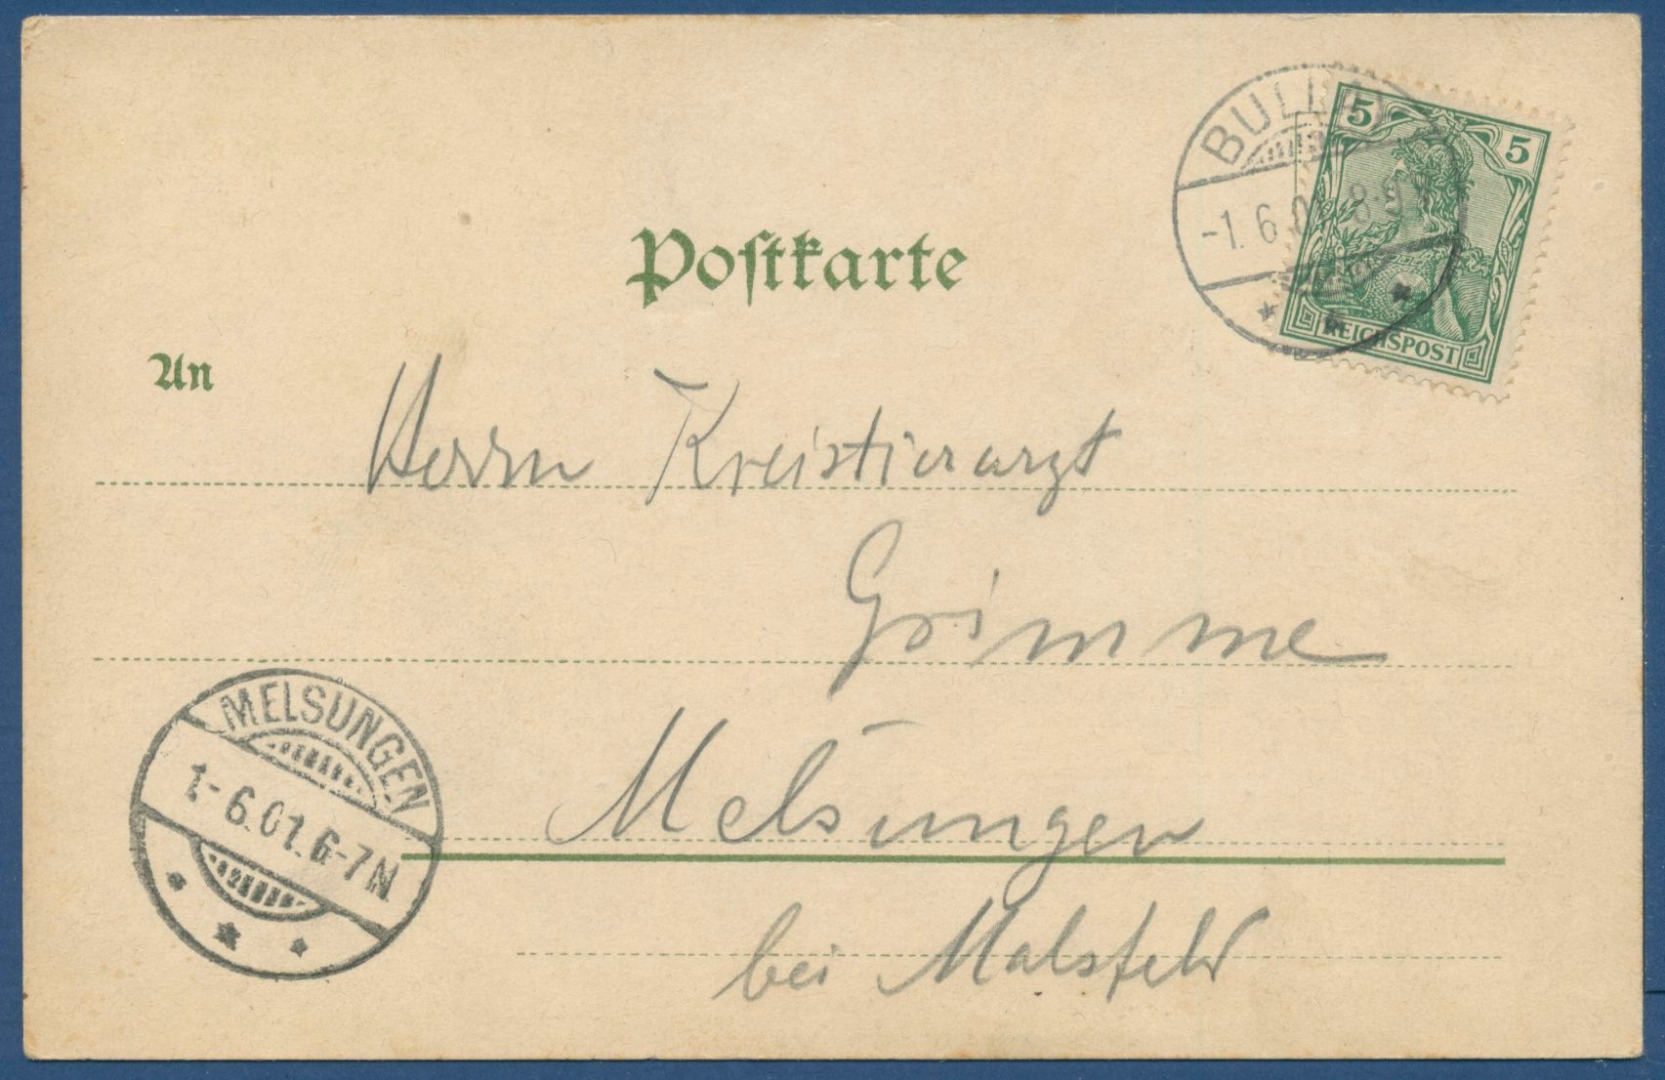 5 5
-1. 6 8-9
REICHSPOST
Postkarte
An
Herrn Kreistierarzt
Grimme
Melsungen
bei Malsfeld
MELSUNGEN
1.-6.01.6-7N